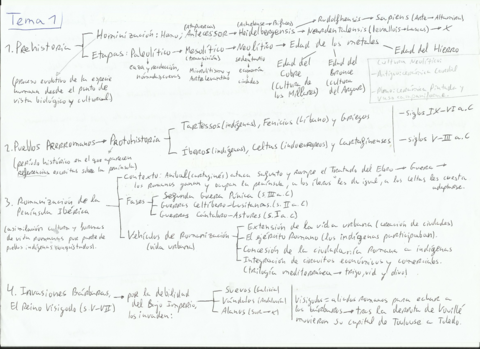 Tema 1
1. Prehistoria
Hominización: Homo Antecessor → Heidelbergensis → Neandertalensis → X
Rudolfensis → Sapiens
Etapas: Paleolítico → Mesolítico → Neolítico → Edad de los metales
caza y recolección,
(transición)
Microlitismo y
sedentarismo
economía
Edad del Cobre
(Cultura de los Millares)
Edad del Bronce
(Cultura del Argar)
Edad del Hierro
(proceso evolutivo de la especie
humana desde el punto de
vista biológico y cultural)
Cultura Neolítica:
2. Pueblos Prerromanos → Protohistoria
Tartessos (indígenas), Fenicios (Líbano) y Griegos
- siglos IX-VI a.C
Iberos (indígenas), Celtas (indoeuropeos) y Cartagineses
- siglos V-III a.C
(período histórico en el que aparecen
referencias escritas sobre la península)
3. Romanización de la
Península Ibérica
(asimilación cultura y formas
de vida romanas por parte de
pueblos indígenas conquistados)
Contexto: Aníbal (cartaginés) ataca Sagunto y rompe el Tratado del Ebro → Guerra →
los romanos ganan y ocupan la península, a los iberos les da igual, a los Celtas les cuesta
adaptarse.
Fases
Segunda Guerra Púnica (s. III a.C)
Guerras Celtíbero-Lusitanas (s. II a.C)
Guerras Cántabro-Astures (s. I a.C)
Vehículos de Romanización
(vida urbana)
Extensión de la vida urbana (creación de ciudades)
El ejército Romano (los indígenas participaban)
Concesión de la ciudadanía Romana a indígenas
Integración de circuitos económicos y comerciales.
(trilogía mediterránea → trigo, vid y olivo)
4. Invasiones Bárbaras,
El Reino Visigodo (s. V-VII)
por la debilidad
del Bajo Imperio
los invaden:
Suevos (Galicia)
Vándalos (Andalucía)
Alanos
Visigodos = aliados Romanos para echar a
los bárbaros → tras la derrota de Vouillé
movieron su capital de Toulouse a Toledo.